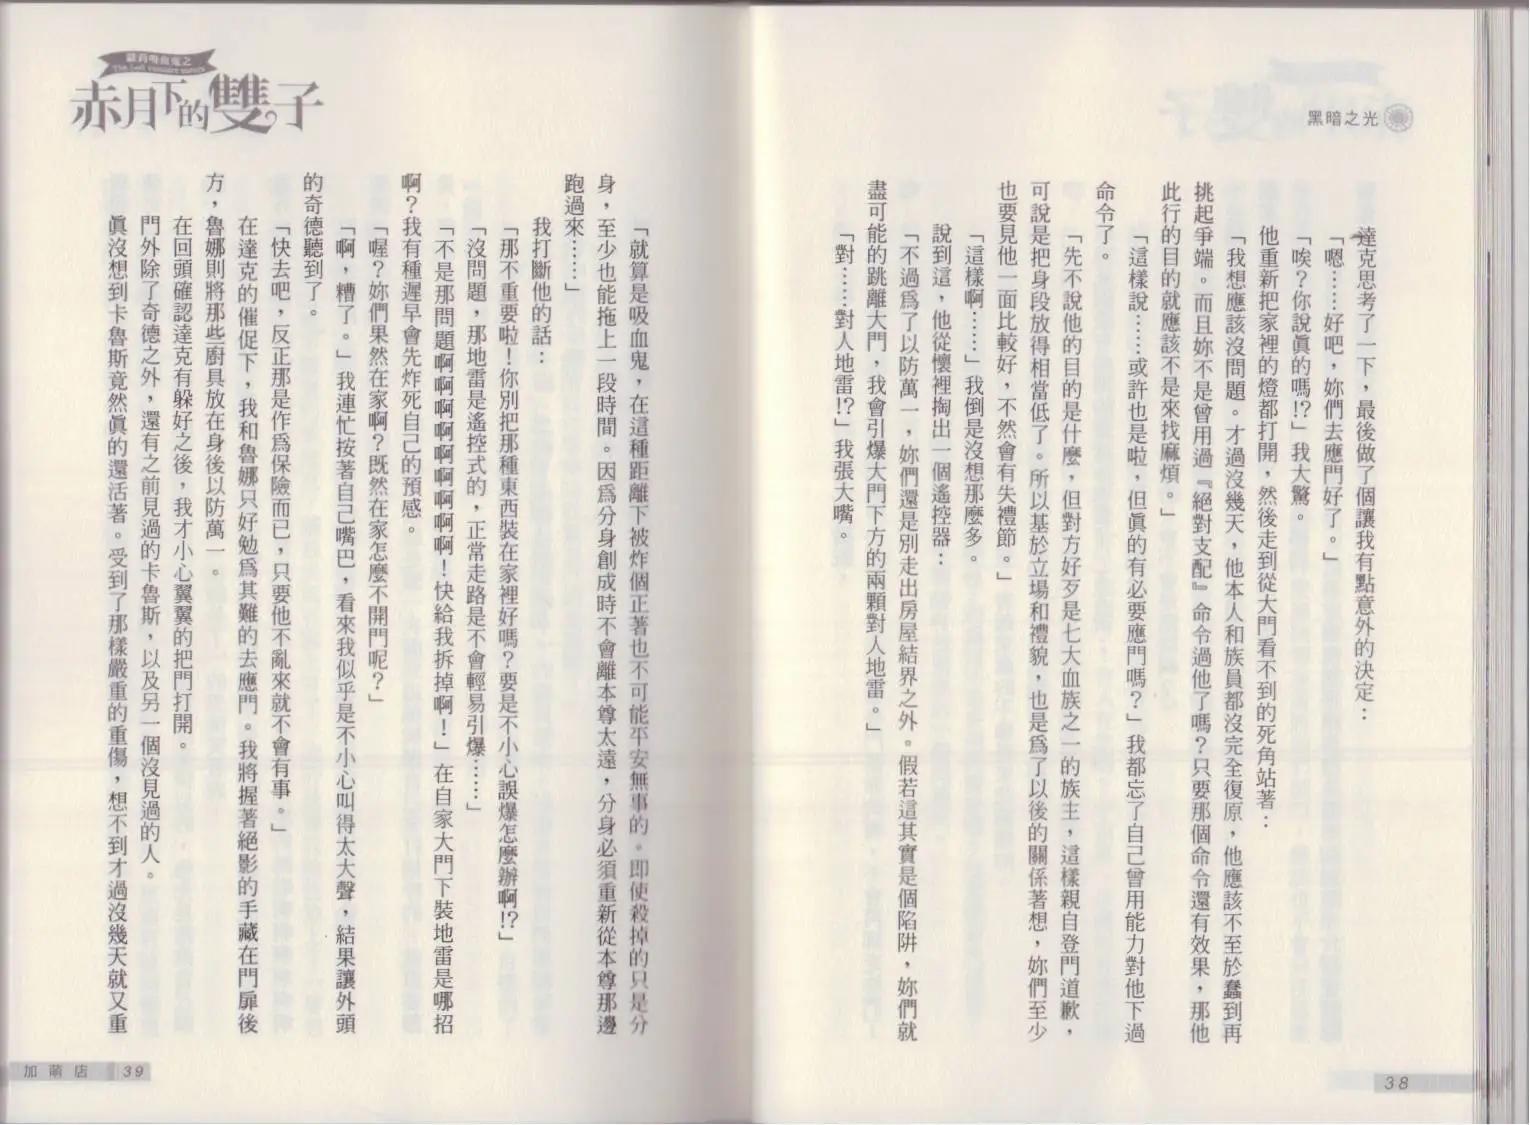 黑暗之光
達克思考了一下，最後做了個讓我有點意外的決定：
「嗯……好吧，妳們去應門好了。」
「唉？你說真的嗎!?」我大驚。
他重新把家裡的燈都打開，然後走到從大門看不到的死角站著：
「我想應該沒問題。才過沒幾天，他本人和族員都沒完全復原，他應該不至於蠢到再
挑起爭端。而且妳不是曾用過『絕對支配』命令過他了嗎？只要那個命令還有效果，那他
此行的目的就應該不是來找麻煩。」
「這樣說……或許也是啦，但真的有必要應門嗎？」我都忘了自己曾用能力對他下過
命令了。
「先不說他的目的是什麼，但對方好歹是七大血族之一的族主，這樣親自登門道歉，
可說是把身段放得相當低了。所以基於立場和禮貌，也是為了以後的關係著想，妳們至少
也要見他一面比較好，不然會有失禮節。」
「這樣啊……」我倒是沒想那麼多。
說到這，他從懷裡掏出一個遙控器：
「不過為了以防萬一，妳們還是別走出房屋結界之外。假若這其實是個陷阱，妳們就
盡可能的跳離大門，我會引爆大門下方的兩顆對人地雷。」
「對……對人地雷!?」我張大嘴。
38
赤月下的雙子
「就算是吸血鬼，在這種距離下被炸個正著也不可能平安無事的。即使殺掉的只是分
身，至少也能拖上一段時間。因為分身創成時不會離本尊太遠，分身必須重新從本尊那邊
跑過來……」
我打斷他的話：
「那不重要啦！你別把那種東西裝在家裡好嗎？要是不小心誤爆怎麼辦啊!?」
「沒問題，那地雷是遙控式的，正常走路是不會輕易引爆……」
「不是那問題啊啊啊啊啊啊啊啊啊！快給我拆掉啊！」在自家大門下裝地雷是哪招
啊？我有種遲早會先炸死自己的預感。
「喔？妳們果然在家啊？既然在家怎麼不開門呢？」
「啊，糟了。」我連忙按著自己嘴巴，看來我似乎是不小心叫得太大聲，結果讓外頭
的奇德聽到了。
「快去吧，反正那是作為保險而已，只要他不亂來就不會有事。」
在達克的催促下，我和魯娜只好勉為其難的去應門。我將握著絕影的手藏在門扉後
方，魯娜則將那些廚具放在身後以防萬一。
在回頭確認達克有躲好之後，我才小心翼翼的把門打開。
門外除了奇德之外，還有之前見過的卡魯斯，以及另一個沒見過的人。
真沒想到卡魯斯竟然真的還活著。受到了那樣嚴重的重傷，想不到才過沒幾天就又重
加萌店 39